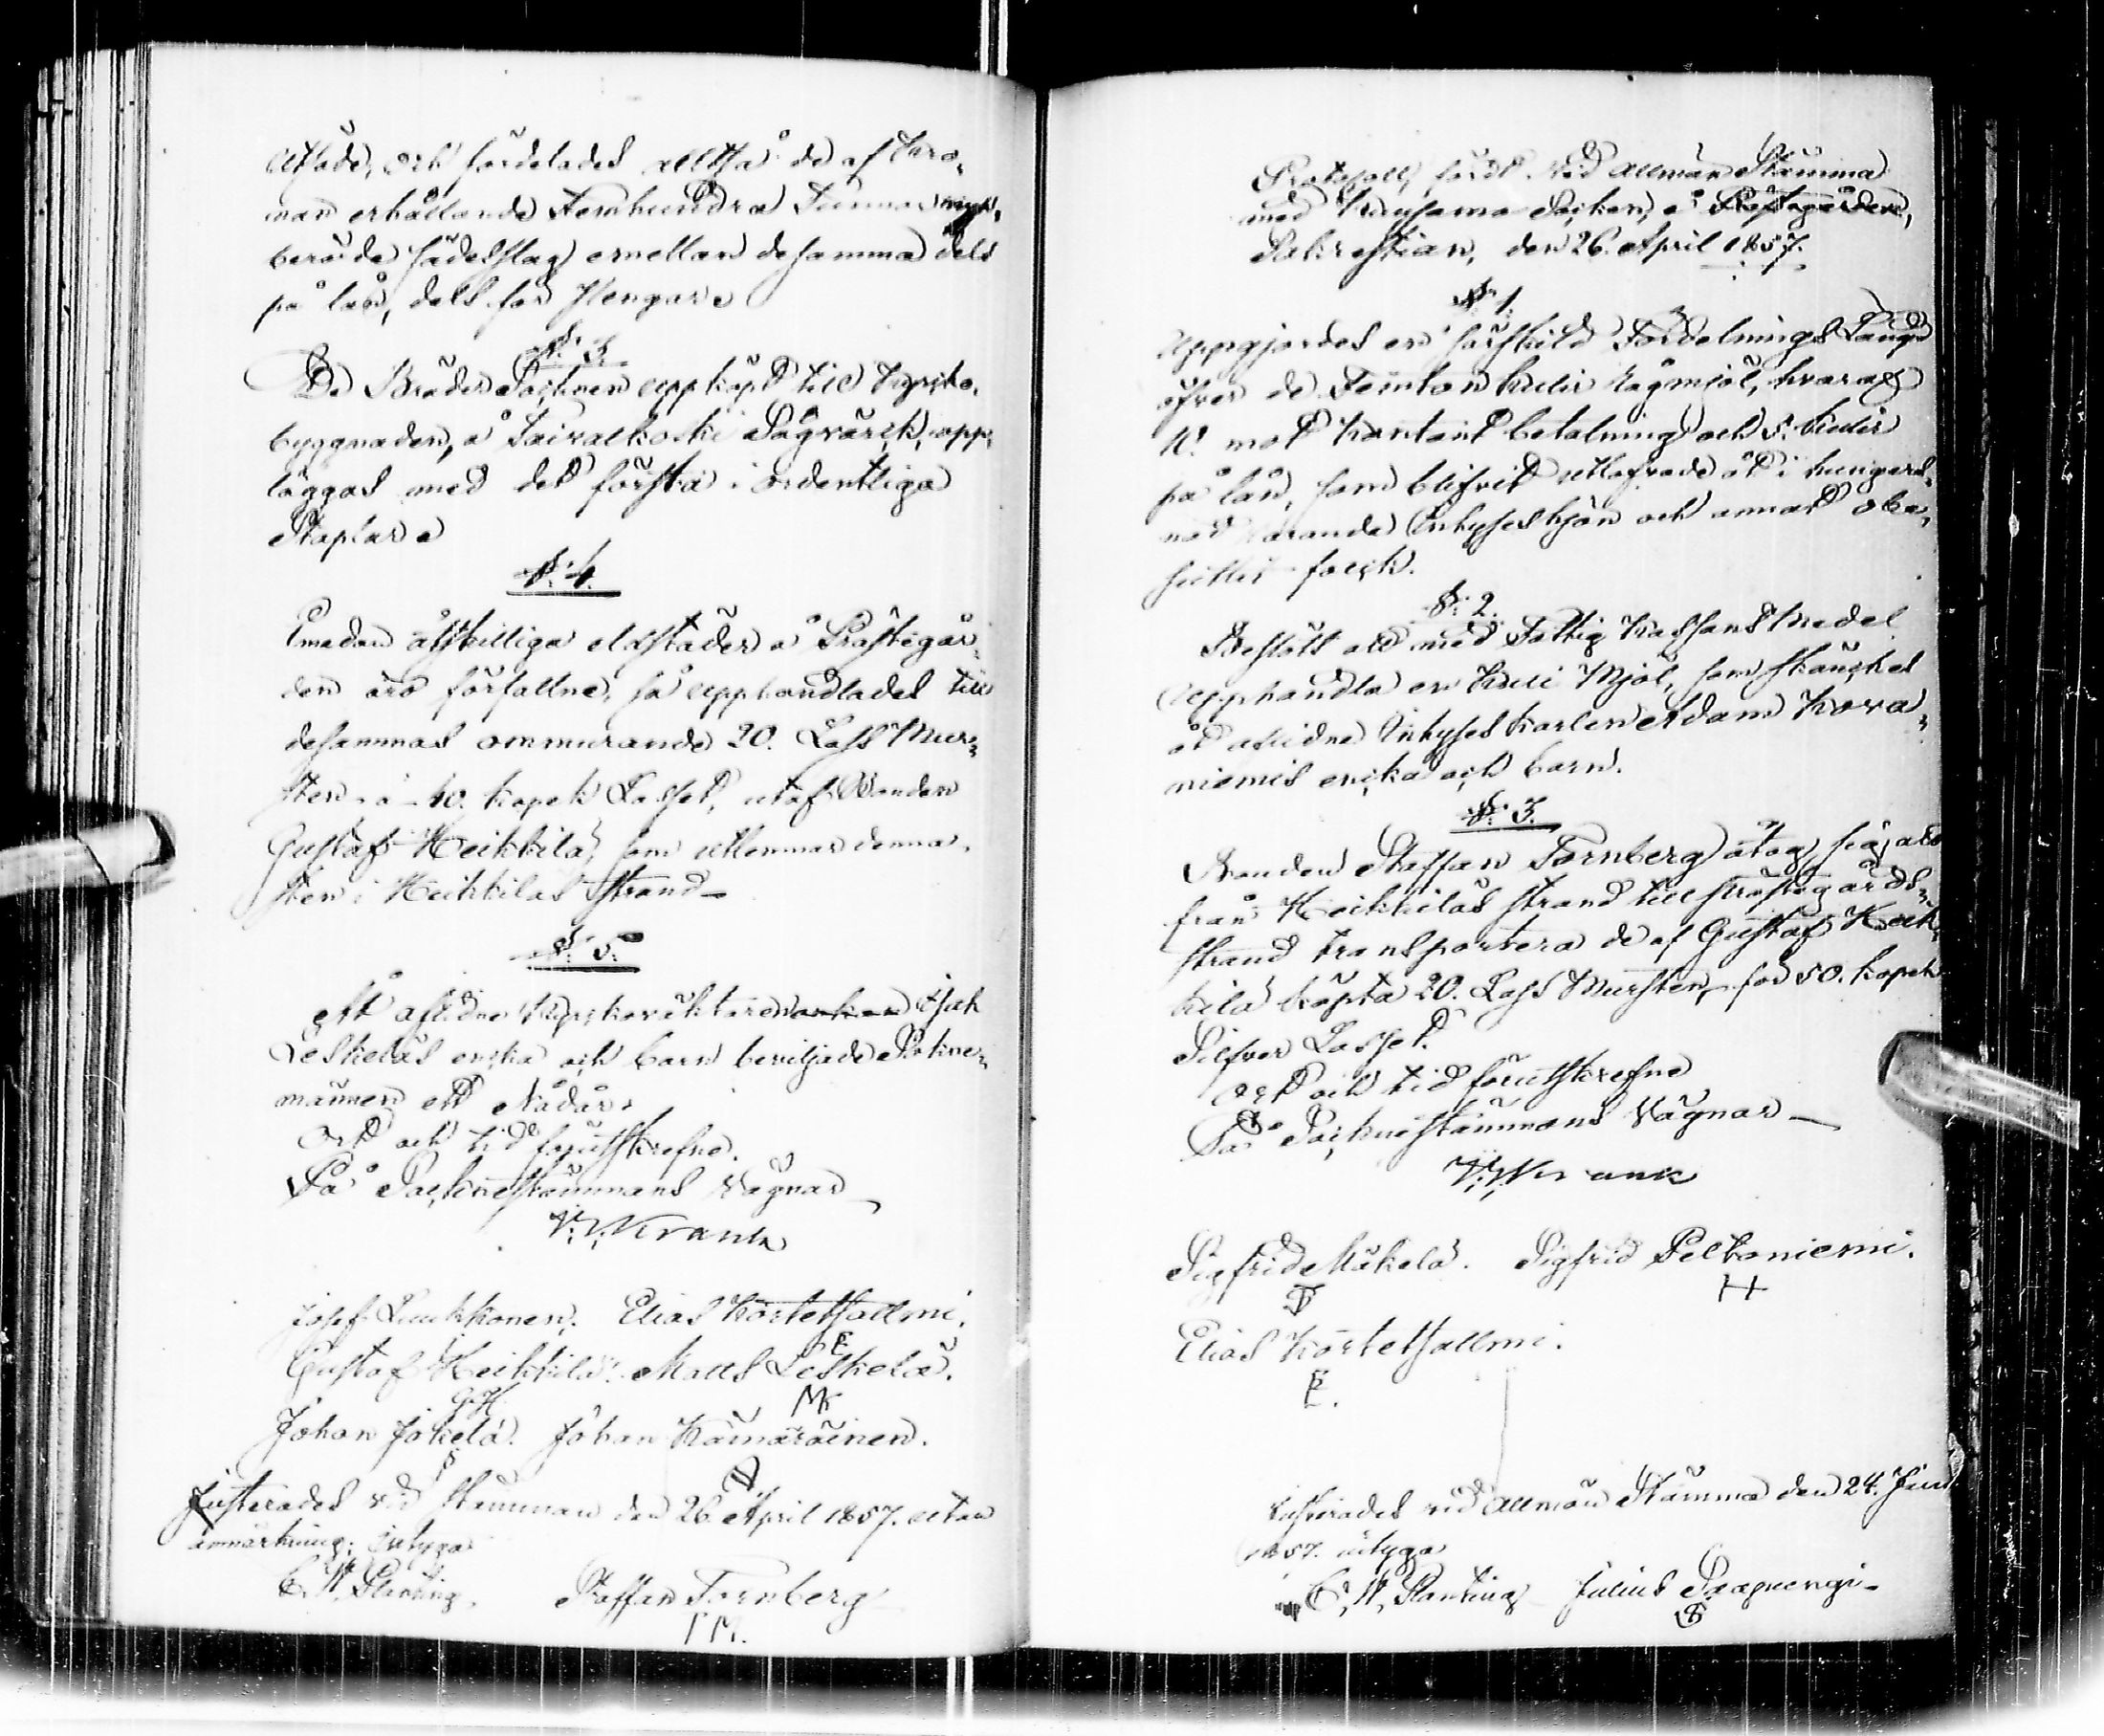 åtföde, och fördelades alltså de af Kro-
nan erhållande Femhundra Tunnor
berörde sädesslag emellan desamma dels
på lån, dels för Pengar.
§. 3.
De Bräder Socknen uppköpt till Kyrko-
byggnaden, å Taivalkoski Sågvärck, upp-
läggas med det första i ordentliga
Staplar.
§. 4.
Emedan åtskilliga eldstäder å Prästegår-
den äro förfallne, så upphandlades till
desammas ommurande 20. Lass Mur-
sten, a 40. kopek Lasset, utaf Bonden
Gustaf Heikkilä, som utlemnar denna
sten i Heikkiläs strand.
§. 5.
Åt aflidne Kyrkoväktaren Isak
Leskeläs encka och barn beviljade Sockne-
männen ett Nådår.
Ort och tid förutskrefne.
På Sockenstämmans Vägnar
Josef Luukkonen. Elias Kortetsallmi.
Gustaf Heikkilä. Matts Leskelä.
GH MK
Johan Jokela. Johan Kämäräinen.
Justerades vid Stämman den 26. April 1857. utan
anmärkning; intyga
C. W. Planting. Staffan Tornberg
Protokoll, fördt vid allmän Stämma
med Kuusamo Socken, å Prästegården,
Sakrestian, den 26. April 1857.
§. 1.
Uppgjordes en särskild Fördelnings Längd
öfver de Femton kulir Rågmjöl, hvaraf
10. mot kontant betalning och 5. kulir
på lån, som blifvit utlofvade åt i hungers-
nöd varande Inhyseshjon och annat obe-
suttet folck.
§. 2.
Beslöts att med Fattig Kassans Medel
upphandla en Kuli Mjöl, som skänckes
åt aflidne Inhyses karlen Adam Kova-
niemis encka och barn.
§. 3.
Bonden Staffan Tornberg åtog sig, att
från Heikkiläs strand till Prästegårds-
strand transportera de af Gustaf Heik-
kilä köpta 20. Lass Mursten, för 50. kopek
Silfver Lasset.
Ort och tid förutskrefne
På Sockenstämmans Vägnar
Sigfrid Mäkelä. Sigfrid Peltoniemi.
Elias Kortetsallmi.
E.
Justerades vid allmän Stämma den 24. Juni
1857. intyga
C. W. Planting Julius